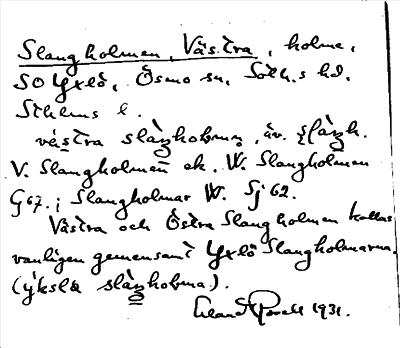 Slangholmen, Västra, holme,
SO Yxlö, Ösmo sn, Soth.s hd.
Sthlms l.
västra slàŋholmən, äv.
V. Slangholmen ek. W. Slangholmen
G 67.; Slangholmar W. Sj 62.
Västra och Östra Slangholmen kallas
vanligen gemensamt Yxlö Slangholmarna.
(ýkslö slàŋholma).
1931.